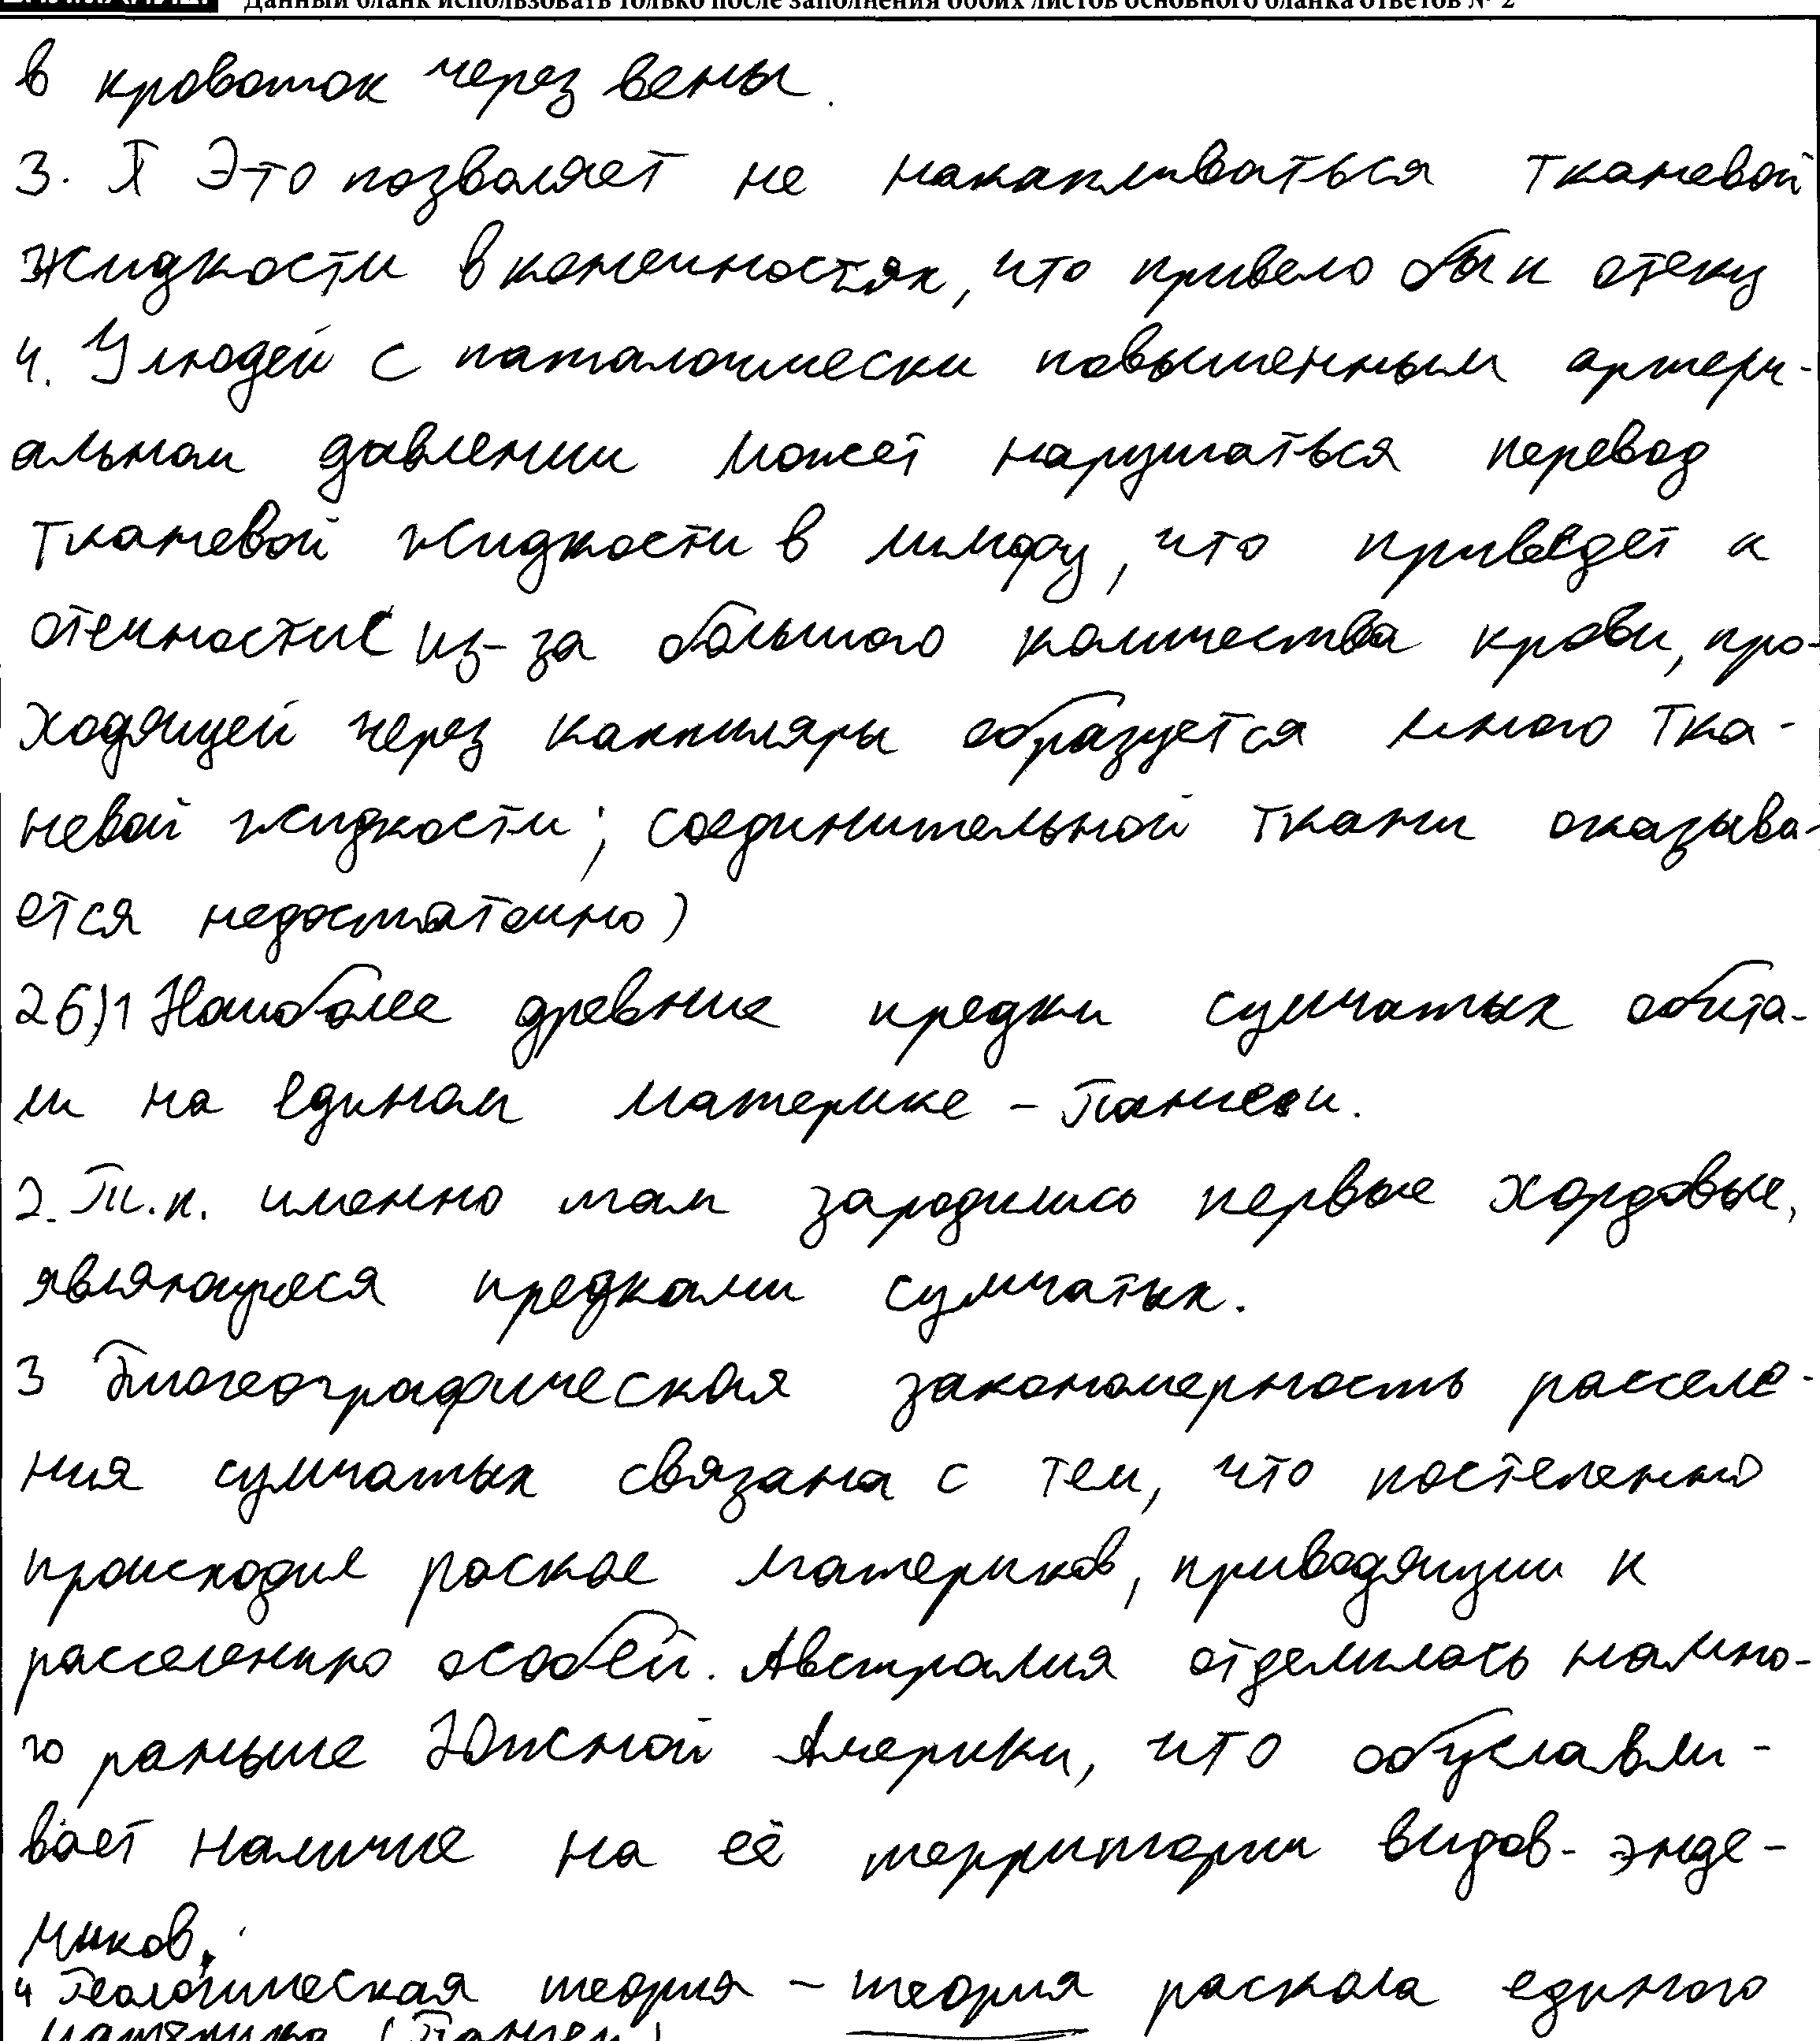 Данный бланк использовать только после заполнения обоих листов основного бланка ответов № 2
в кровоток через вены.
3. Это позволяет не накапливаться тканевой
жидкости в конечностях, что привело бы к отеку
4. У людей с паталогически повышенным артери-
альном давлении может нарушаться перевод
тканевой жидкости в лимфу, что приведет к
отечности( из-за большого количества крови, про-
ходящей через каппиляры образуется много тка-
невой жидкости; соединительной ткани оказыва-
ется недостаточно)
26)1 Наиболее древние предки сумчатых обита-
ли на едином материке – Пангеи.
2. Т.к. именно там зародились первые хордовые,
являющиеся предками сумчатых.
3 Биогеографическая закономерность расселе-
ния сумчатых связана с тем, что постепенно
происходил раскол материков, приводящий к
расселению особей. Австралия отделилась намно-
го раньше Южной Америки, что обуславли-
вает наличие на её территории видов-энде-
миков.
4 Геологическая теория – теория раскола единого
материка (Пангеи)